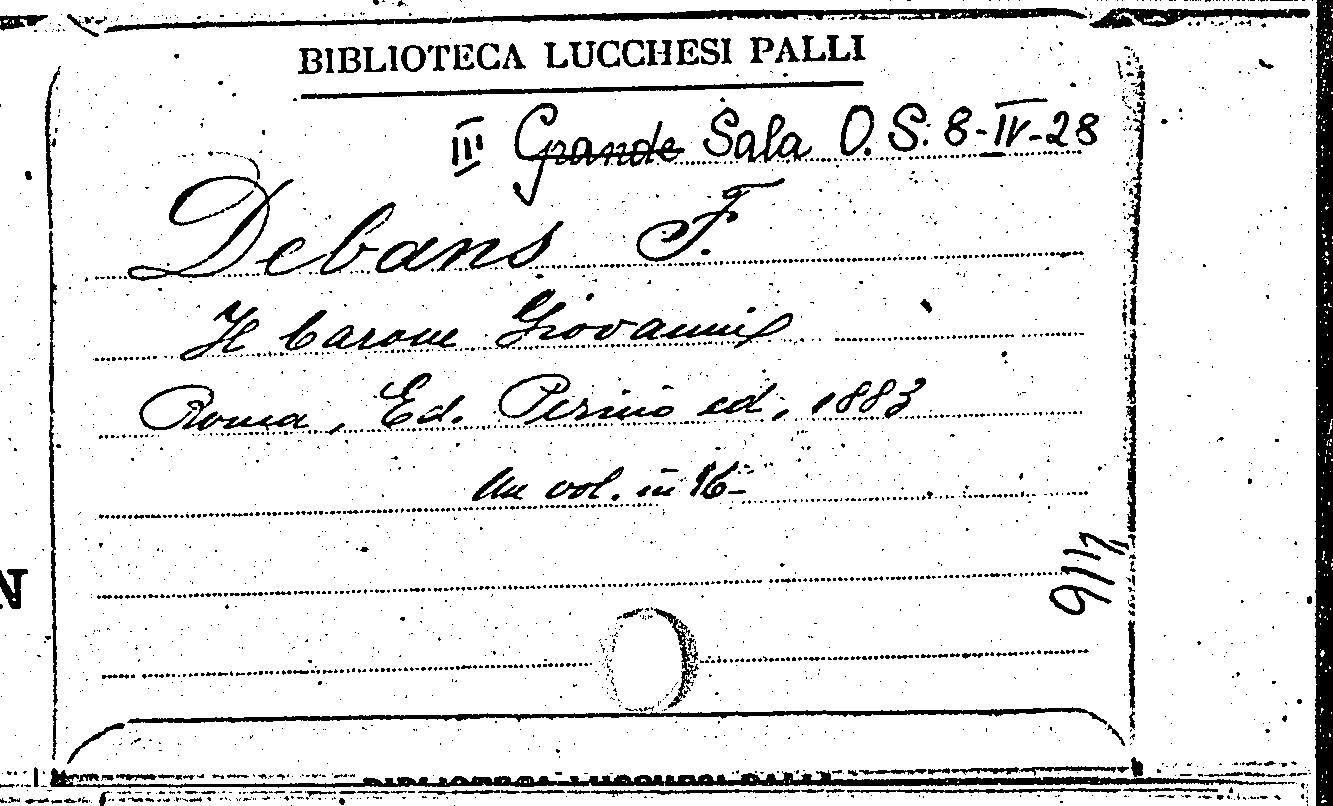 BIBLIOTECA LUCCHESI PALLI
III Grande Sala O. S. 8-IV-28
Debans F.
Il barone Giovanni
Roma, Ed. Perino ed, 1883
Un vol. in 16-
N
BIBLIOTECA LUCCHESI PALLI